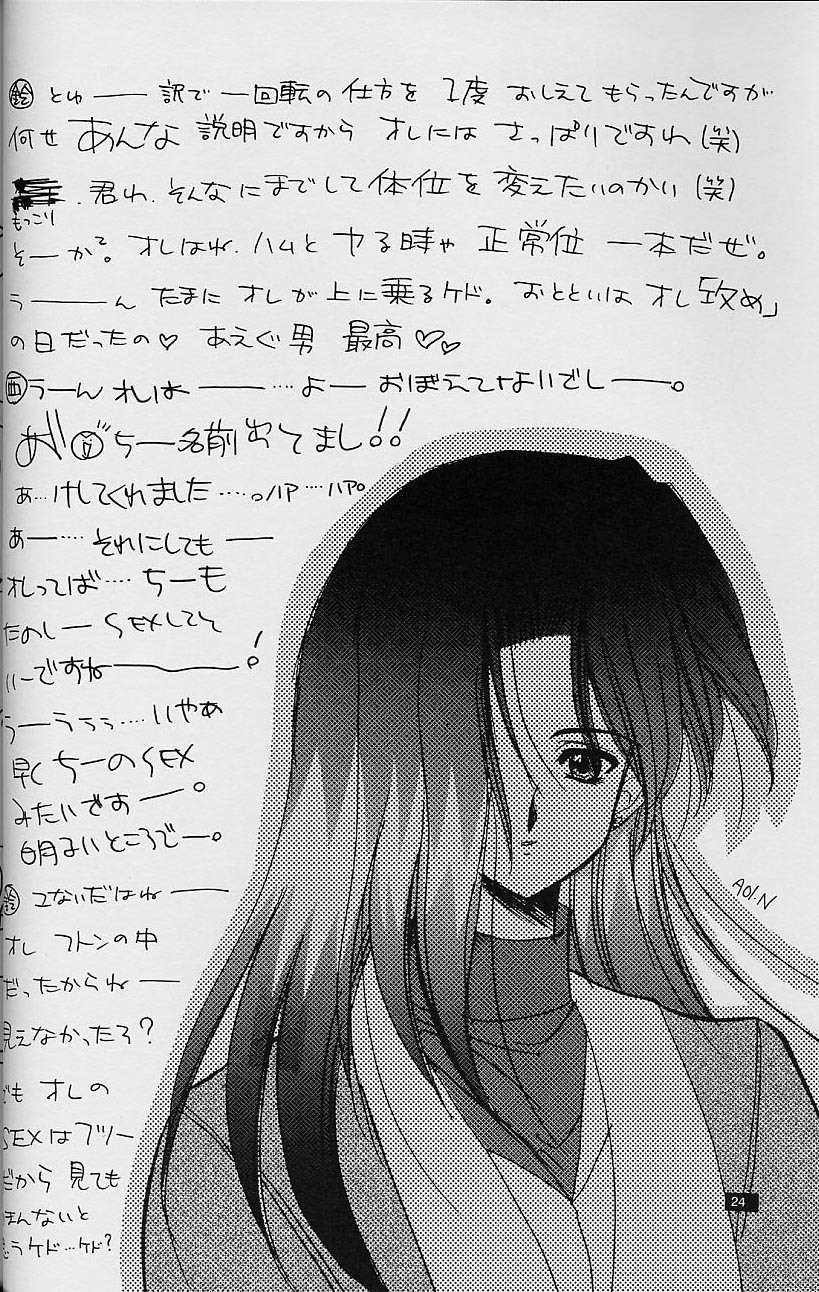 鈴 とゆ── 訳で 一回転の 仕方を 1度 おしえて もらったんですが
何せ あんな 説明ですから オレには さっぱりですわ(笑)
.君わ.そんなにまでして体位を変えたいのかい(笑)
もっこり
そーか?。オレはね.ハムと ヤる時ゃ 正常位 一本だぜ。
う──ん たまに オレが 上に乗るケド。おとといは オレ「攻め」
の日だったの♡ あえぐ男 最高♡♡
西 うーん オレは──…よー おぼえてないでしー。
ちー名前出てまし!!
あ…けしてくれました….ハア…ハア。
あー… それにしても─
オレってば… ちーも
たのしー SEXしてそ
いーですね──!
うーううう…いやああ
早く ちーのSEX
みたいですおー。
明るいところでー。
鈴 こないだはね──
オレ フトンの中
だったからね─
見えなかったろ?
でも オレの
SEXはフツー
だから 見ても
つまんないと
思うケド…ケド?
AOI.N
24